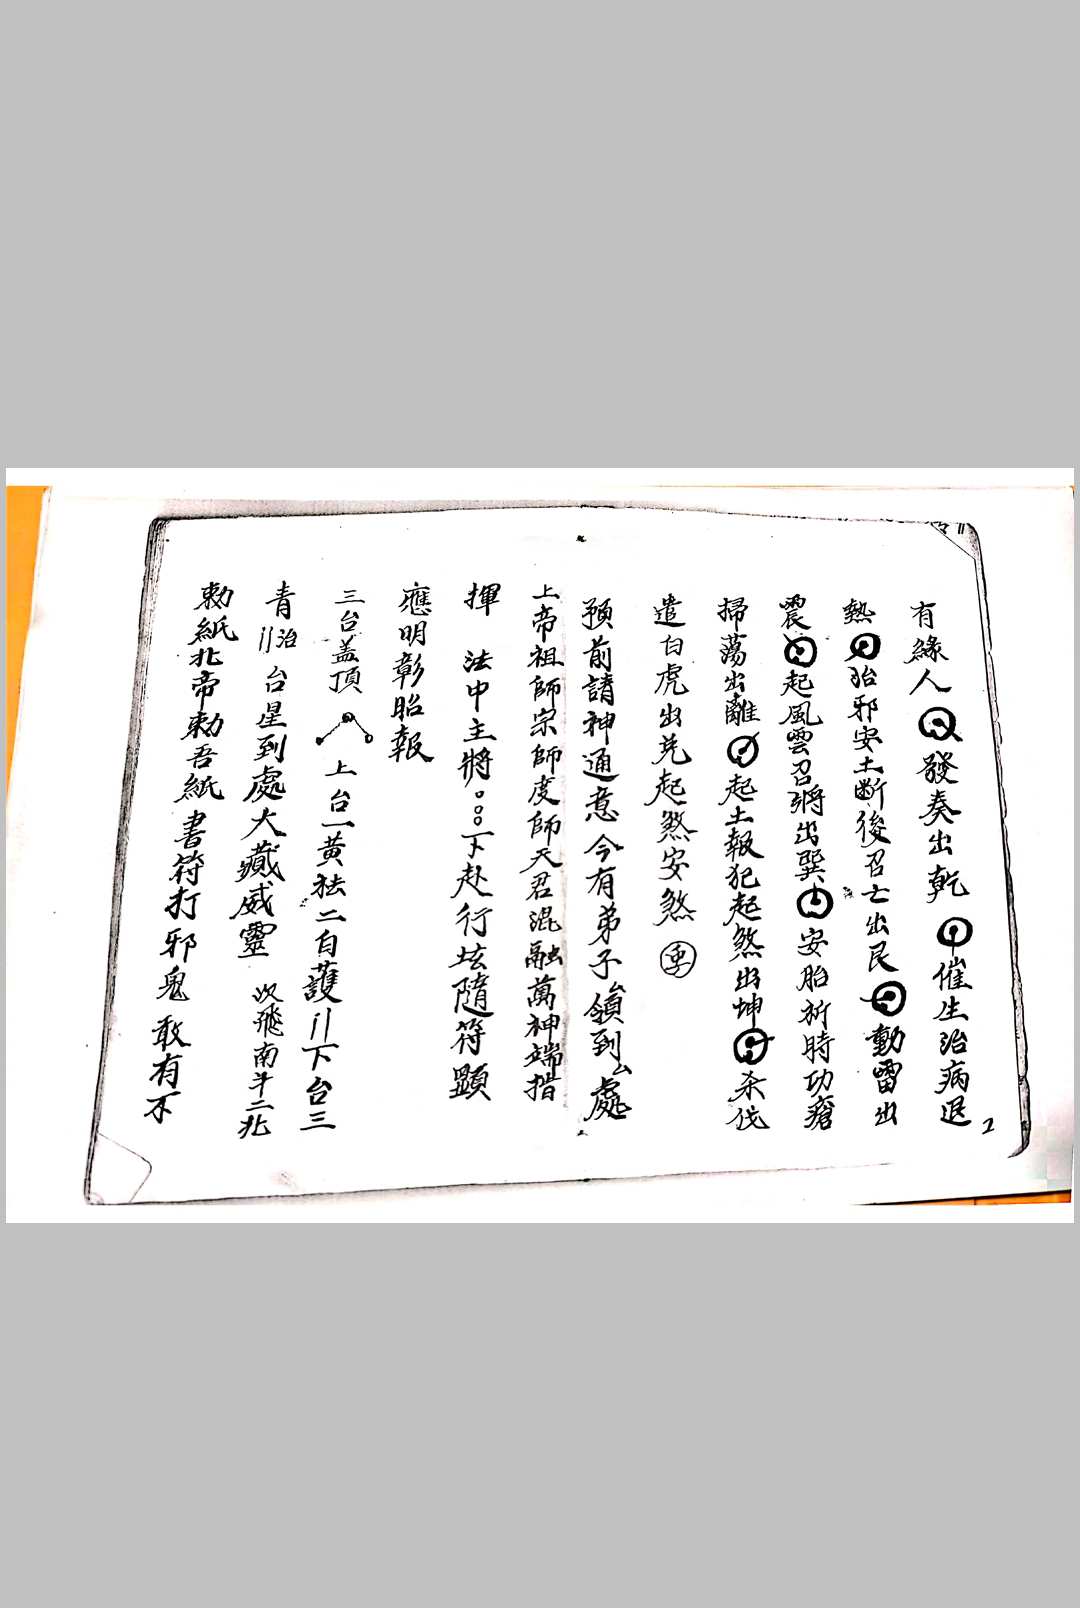 有緣人發奏出乾催生治病退
熱治邪安土斷後召亡出艮動雷出
震起風雲召將出巽安胎祈時功瘡
掃蕩出離起土報犯起煞出坤杀伐
遣白虎出兌起煞安煞
預前請神通意今有弟子領到厶處
上帝祖師宗師度師天君混融萬神端指
揮 法中主將。。。下赴行坛隨符顯
應明彰昭報
三台盖頂 上台一黃祛二自護〢下台三
青〢治台星到處大藏威靈 次飛南斗二北
勅紙北帝勅吾紙書符打邪鬼敢有不
1